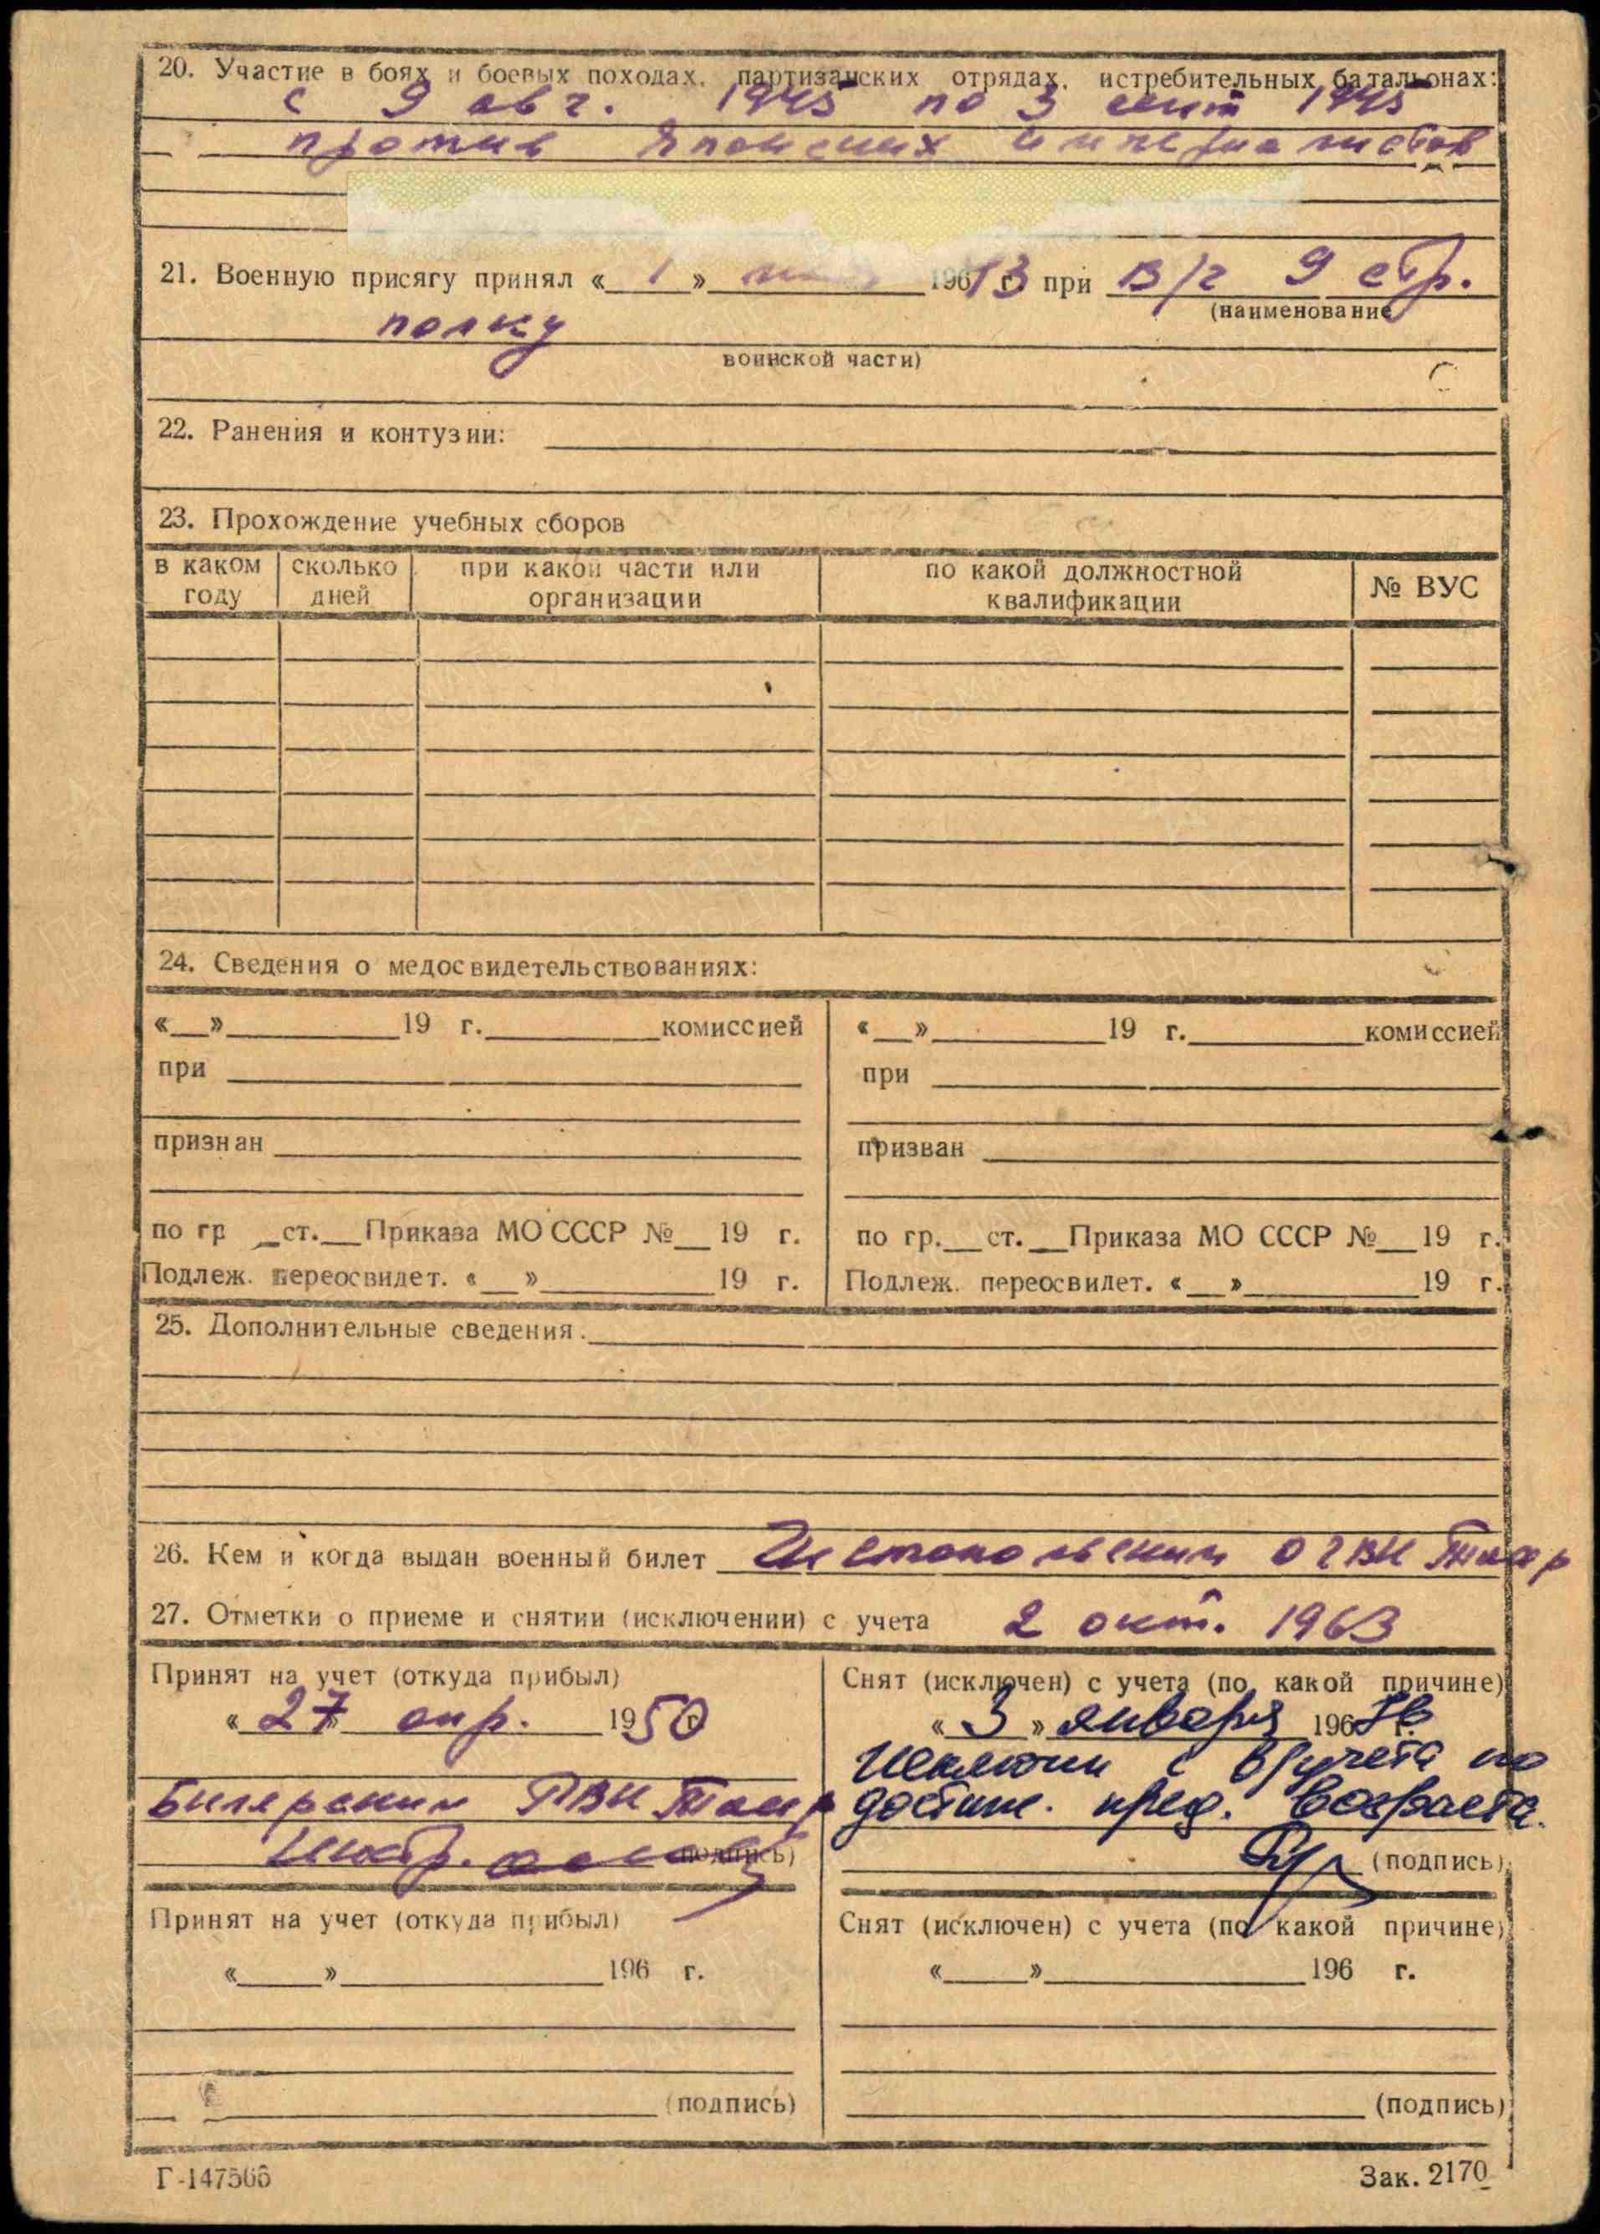 20. Участие в боях и боевых походах, партизанских отрядах, истребительных батальонах:
с 9 авг. 1945 по 3 сент 1945
против Японских империалистов
21. Военную присягу принял « 1 » 196 43 г при в/г 9 стр.
(наименование
полку
воинской части)
22. Ранения и контузии:
23. Прохождение учебных сборов
в каком году | сколько дней | при какой части или организации | по какой должностной квалификации | № ВУС
24. Сведения о медосвидетельствованиях:
«__»________19 г.________комиссией
при
признан
по гр _ст.__Приказа МО СССР №__19 г.
Подлеж. переосвидет. «__»________19 г.
«__»________19 г.________комиссией
при
призван
по гр.__ст.__Приказа МО СССР №__19 г.
Подлеж. переосвидет. «__»________19 г.
25. Дополнительные сведения.
26. Кем и когда выдан военный билет Чистопольским ОГВК
27. Отметки о приеме и снятии (исключении) с учета 2 окт. 1963
Принят на учет (откуда прибыл)
« 27 » апр. 1950 г
Билярским РВК
(подпись)
Снят (исключен) с учета (по какой причине)
« 3 » января 196 г.
с в/учета по
достиж. пред. возраста.
(подпись)
Принят на учет (откуда прибыл)
«____»____________196 г.
(подпись)
Снят (исключен) с учета (по какой причине)
«____»____________196 г.
(подпись)
Г-147566
Зак. 2170